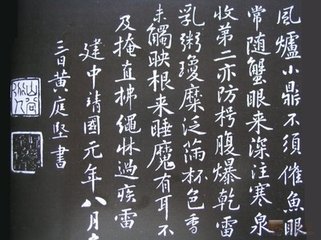 風爐小鼎不須催魚眼
常随蟹眼来深注寒泉
收第二亦防枵腹爆乾雷
乳粥瓊糜泛滿杯色香
未觸映根来睡魔有耳不
及掩直拂繩牀過疾雷
建中靖國元年八月
三日黄庭堅書
山谷道人